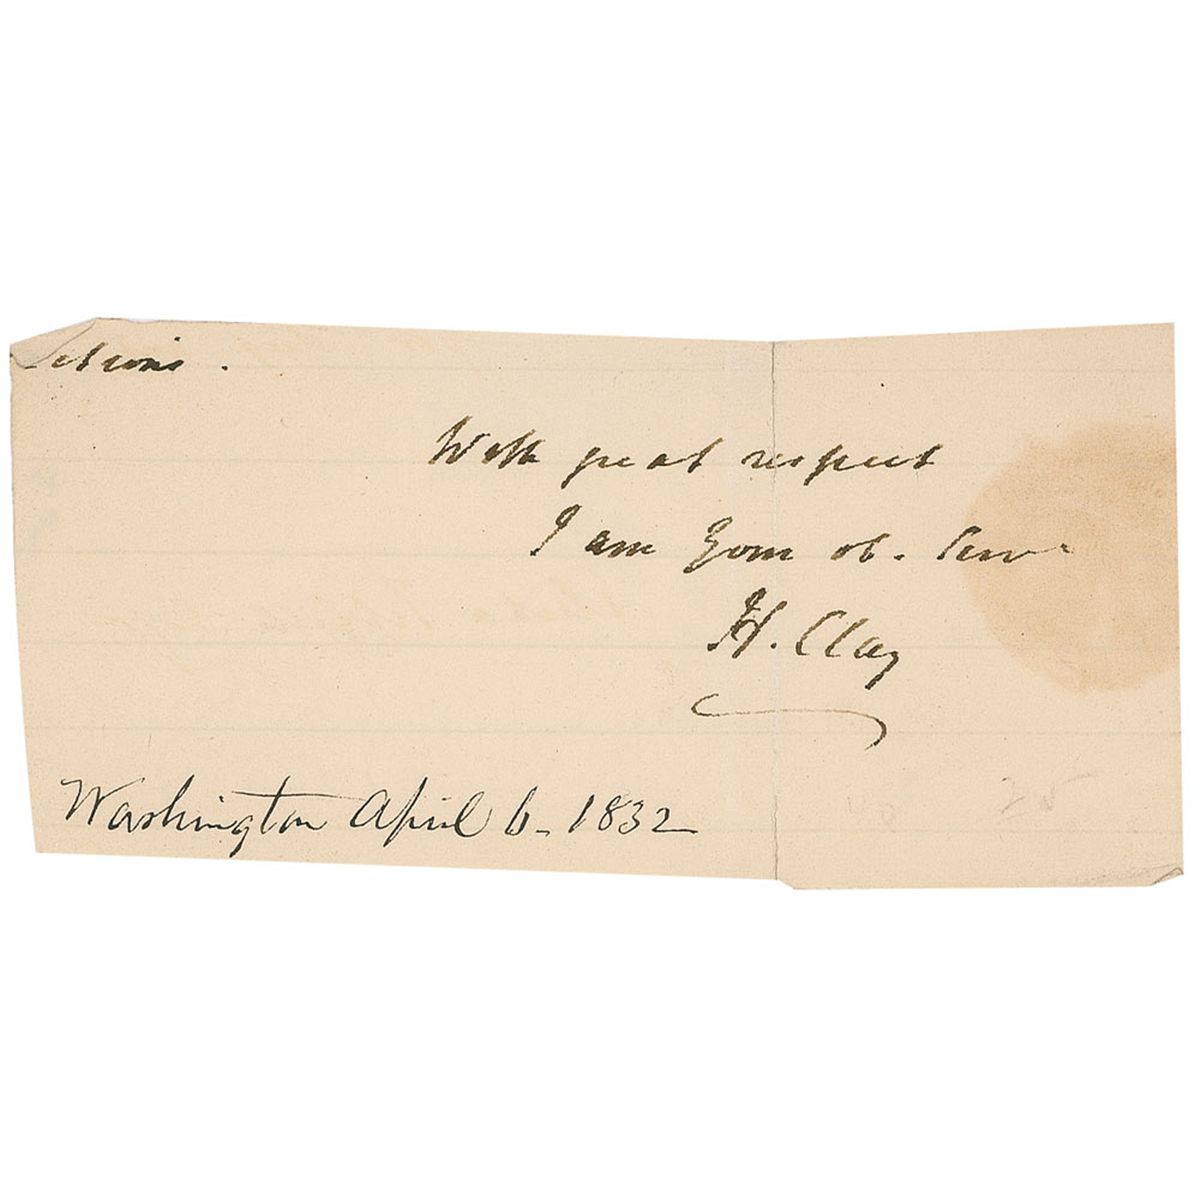 With great respect
I am Your ob. Serv
H. Clay
Washington April 6 - 1832
25